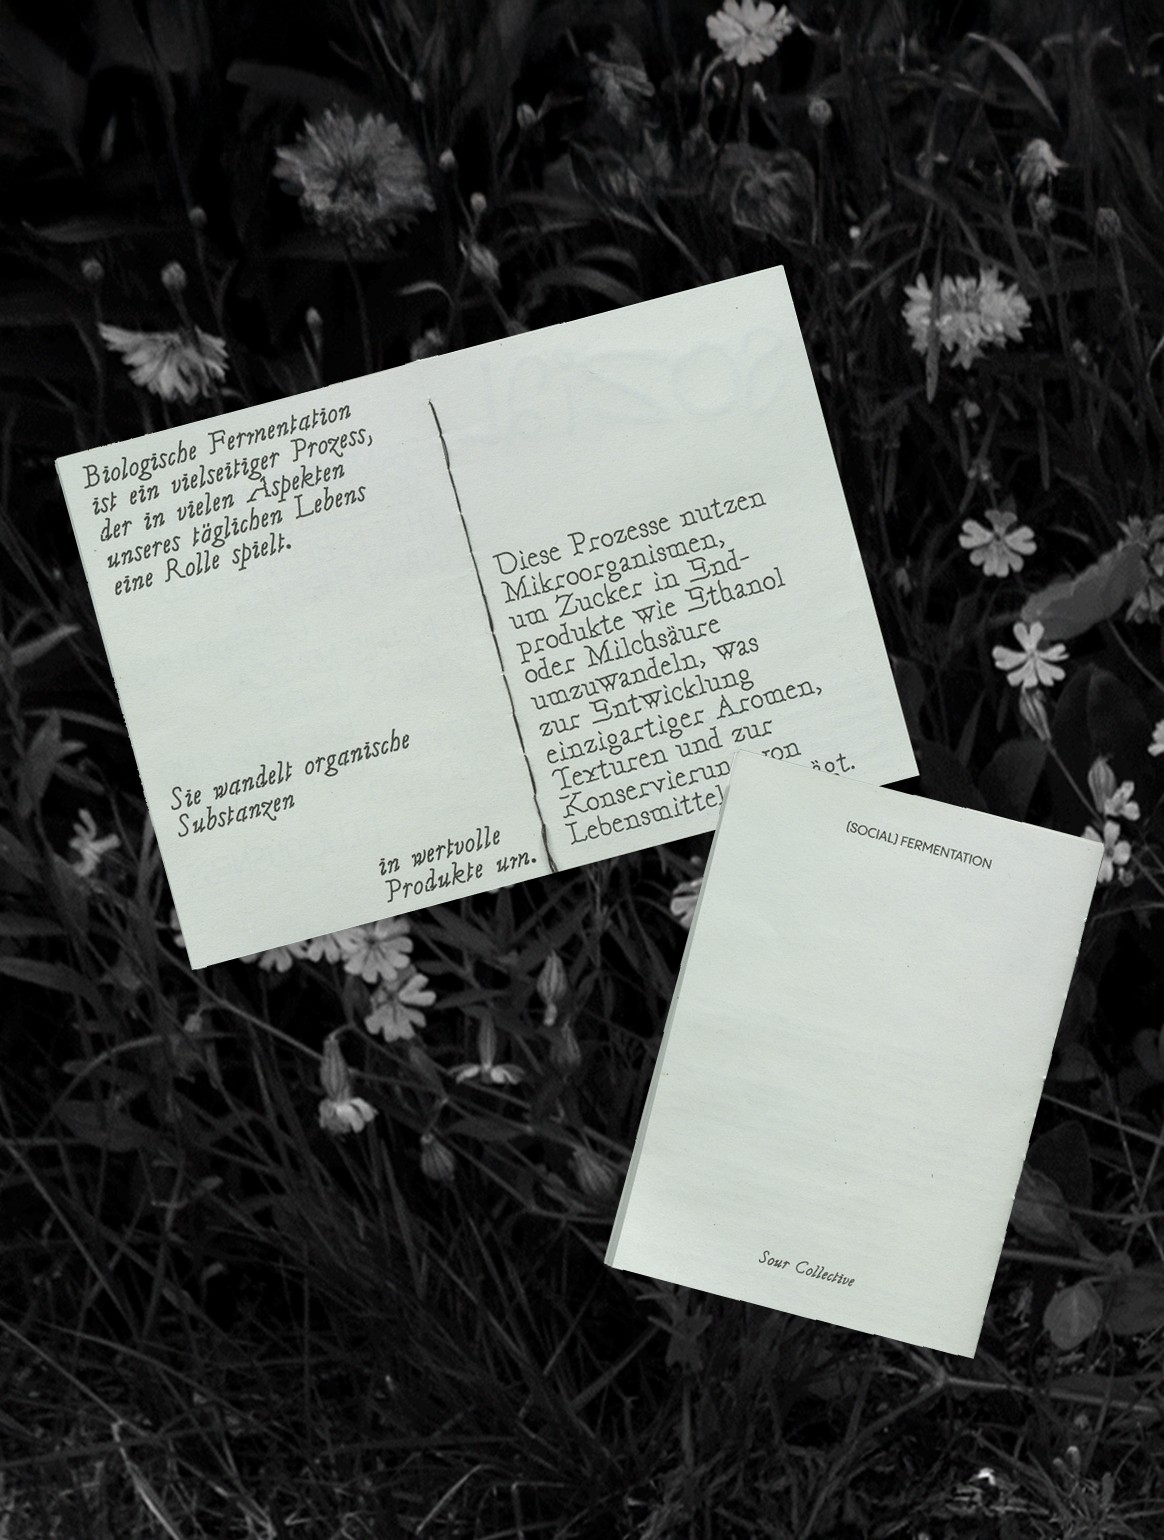 Biologische Fermentation
ist ein vielseitiger Prozess,
der in vielen Aspekten
unseres täglichen Lebens
eine Rolle spielt.
Sie wandelt organische
Substanzen
in wertvolle
Produkte um.
Diese Prozesse nutzen
Mikroorganismen,
um Zucker in End-
produkte wie Ethanol
oder Milchsäure
umzuwandeln, was
zur Entwicklung
einzigartiger Aromen,
Texturen und zur
Konservierung von
Lebensmittel
(SOCIAL) FERMENTATION
Sour Collective